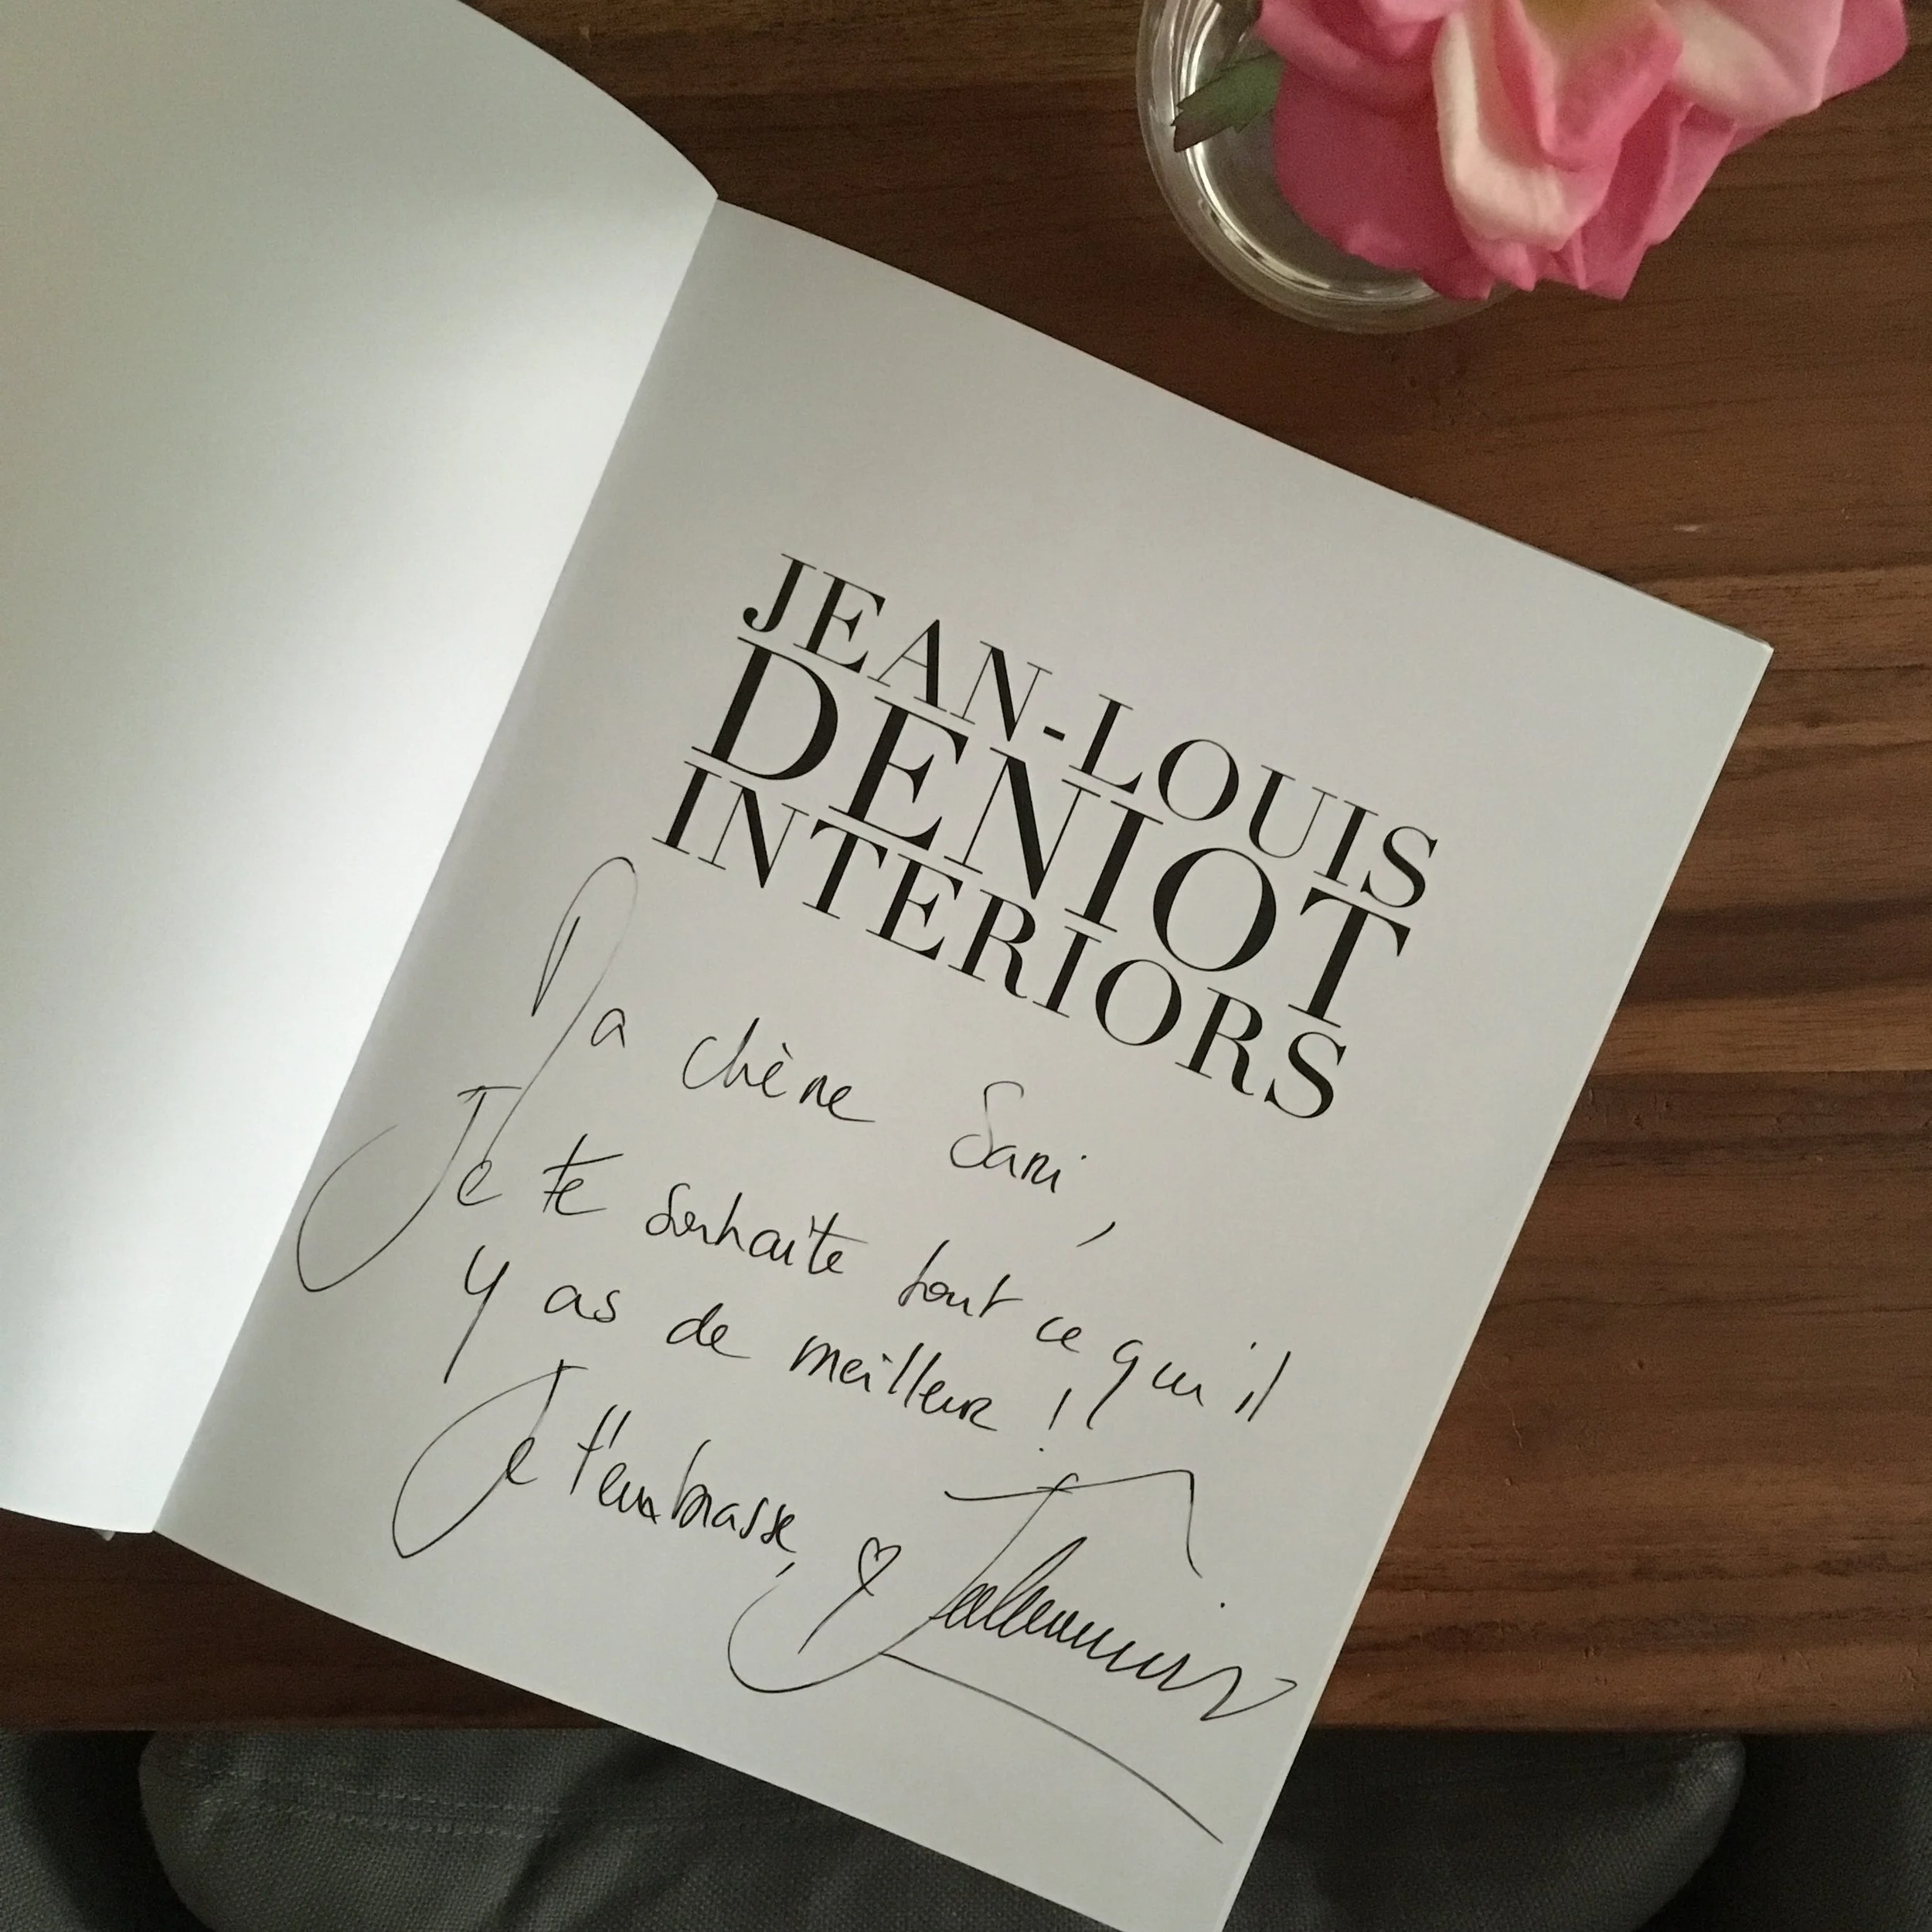 JEAN-LOUIS
DENIOT
INTERIORS
Ma chère Sari,
Je te souhaite tout ce qu'il
y as de meilleur !
Je t'embrasse, ♡